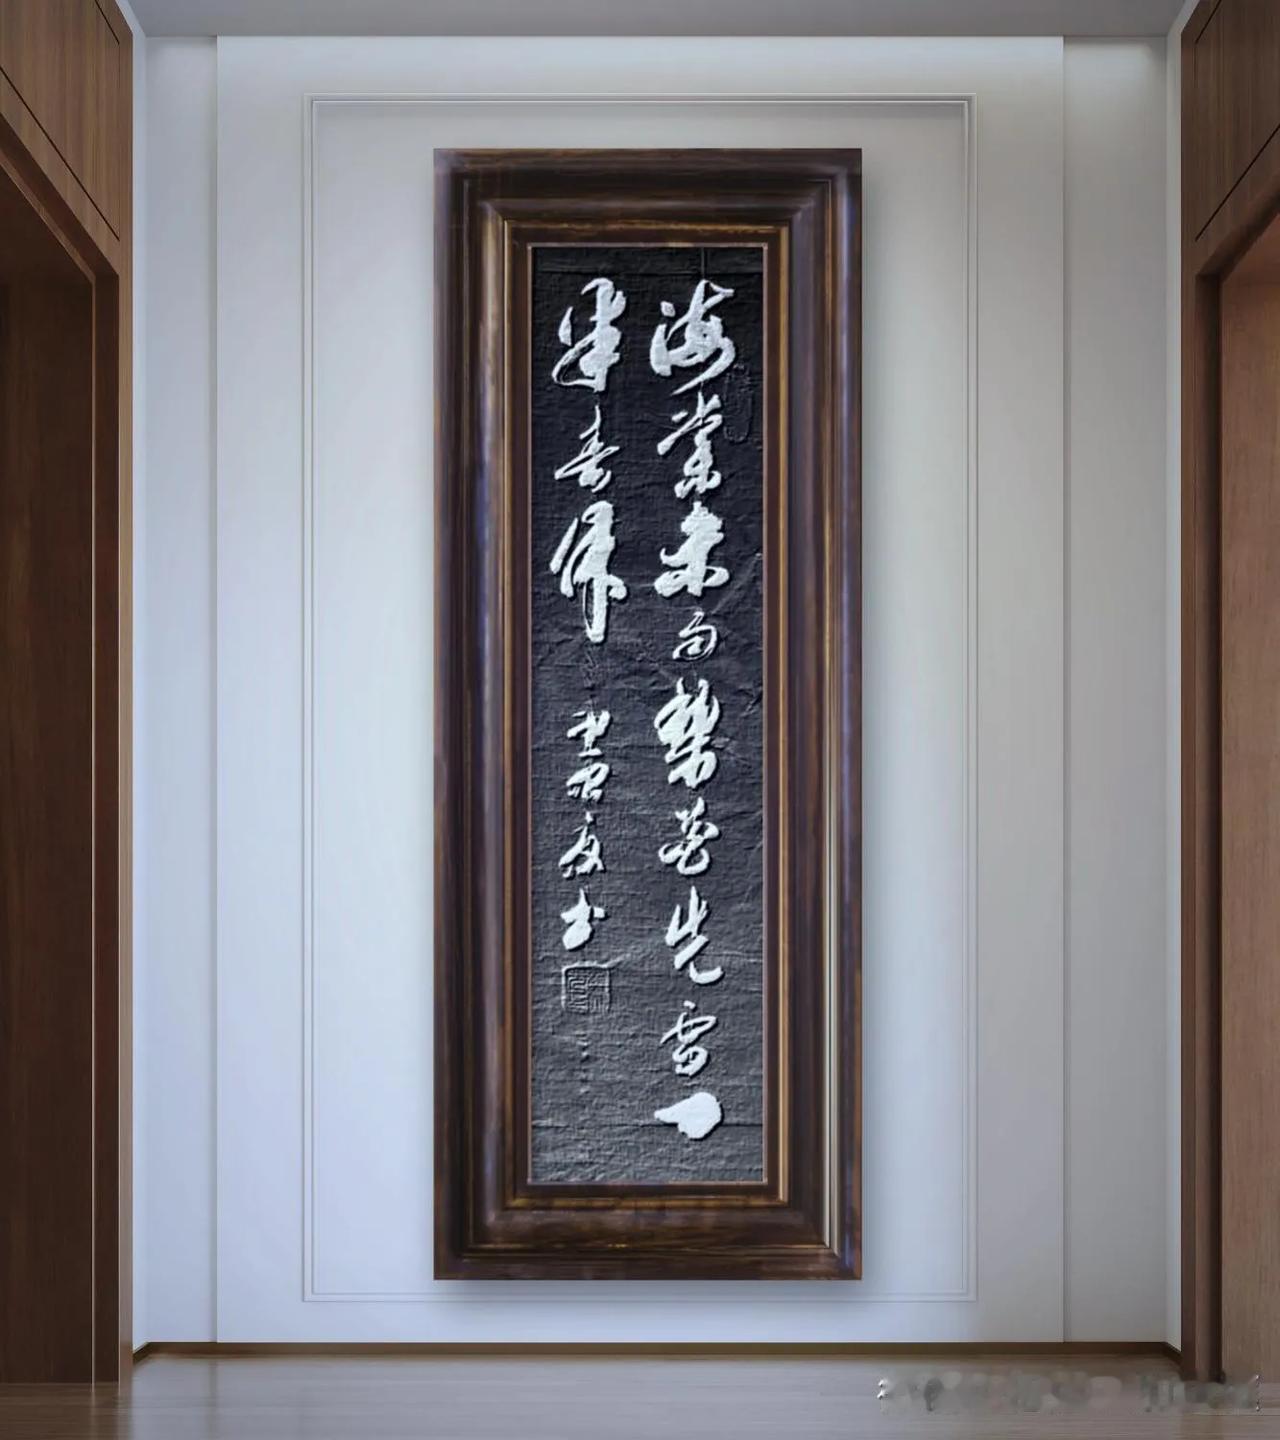 海棠未雨梨花先雪一
半春歸
書